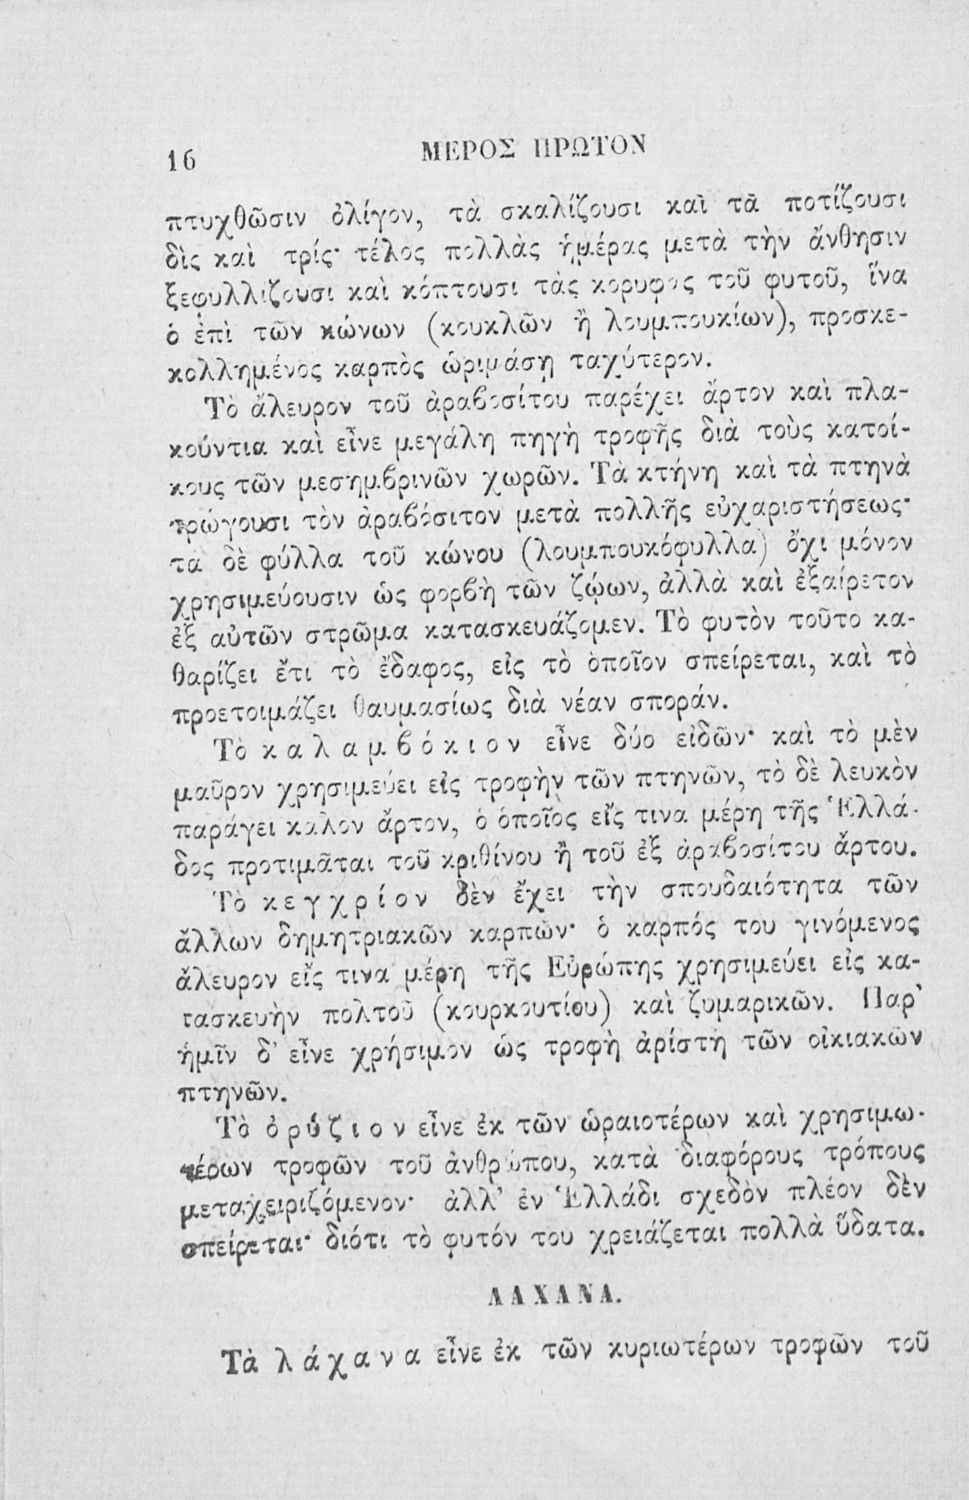 16
ΜΕΡΟΣ ΠΡΩΤΟΝ
πτυχθῶσιν ὀλίγον, τὰ σκαλίζουσι καὶ τὰ ποτίζουσι
δὶς καὶ τρίς· τέλος πολλὰς ἡμέρας μετὰ τὴν ἄνθησιν
ξεφυλλίζουσι καὶ κόπτουσι τὰς κορυφὰς τοῦ φυτοῦ, ἵνα
ὁ ἐπὶ τῶν κώνων (κουκλῶν ἢ λουμπουκίων), προσκε-
κολλημένος καρπὸς ὡριμάσῃ ταχύτερον.
Τὸ ἄλευρον τοῦ ἀραβοσίτου παρέχει ἄρτον καὶ πλα-
κούντια καὶ εἶνε μεγάλη πηγὴ τροφῆς διὰ τοὺς κατοί-
κους τῶν μεσημβρινῶν χωρῶν. Τὰ κτήνη καὶ τὰ πτηνὰ
τρώγουσι τὸν ἀραβόσιτον μετὰ πολλῆς εὐχαριστήσεως·
τὰ δὲ φύλλα τοῦ κώνου (λουμπουκόφυλλα) ὄχι μόνον
χρησιμεύουσιν ὡς φορβὴ τῶν ζῴων, ἀλλὰ καὶ ἐξαίρετον
ἐξ αὐτῶν στρῶμα κατασκευάζομεν. Τὸ φυτὸν τοῦτο κα-
θαρίζει ἔτι τὸ ἔδαφος, εἰς τὸ ὁποῖον σπείρεται, καὶ τὸ
προετοιμάζει θαυμασίως διὰ νέαν σποράν.
Τὸ καλαμβόκιον εἶνε δύο εἰδῶν· καὶ τὸ μὲν
μαῦρον χρησιμεύει εἰς τροφὴν τῶν πτηνῶν, τὸ δὲ λευκὸν
παράγει καλὸν ἄρτον, ὁ ὁποῖος εἴς τινα μέρη τῆς Ἑλλά-
δος προτιμᾶται τοῦ κριθίνου ἢ τοῦ ἐξ ἀραβοσίτου ἄρτου.
Τὸ κεγχρίον δὲν ἔχει τὴν σπουδαιότητα τῶν
ἄλλων δημητριακῶν καρπῶν· ὁ καρπός του γινόμενος
ἄλευρον εἴς τινα μέρη τῆς Εὐρώπης χρησιμεύει εἰς κα-
τασκευὴν πολτοῦ (κουρκουτίου) καὶ ζυμαρικῶν. Παρ᾿
ἡμῖν δ᾿ εἶνε χρήσιμον ὡς τροφὴ ἀρίστη τῶν οἰκιακῶν
πτηνῶν.
Τὸ ὀρύζιον εἶνε ἐκ τῶν ὡραιοτέρων καὶ χρησιμω-
τέρων τροφῶν τοῦ ἀνθρώπου, κατὰ διαφόρους τρόπους
μεταχειριζόμενον· ἀλλ᾿ ἐν Ἑλλάδι σχεδὸν πλέον δὲν
σπείρεται· διότι τὸ φυτόν του χρειάζεται πολλὰ ὕδατα.
ΛΑΧΑΝΑ.
Τὰ λάχανα εἶνε ἐκ τῶν κυριωτέρων τροφῶν τοῦ